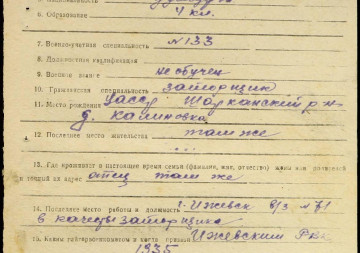 6. Образование 4 кл.
7. Военно-учетная специальность №133
8. Должностная квалификация
9. Военное звание не обучен
10. Гражданская специальность затирщик
11. Место рождения УАССР Шарканский р-н
д. Калиновка
12. Последнее место жительства там же
13. Где проживает в настоящее время семья (фамилия, имя, отчество) жены или родителей
и точный их адрес отец там же
14. Последнее место работы и должность г. Ижевск
в качестве затирщика
15. Каким райгорвоенкоматом и когда призван Ижевским РВК
1935